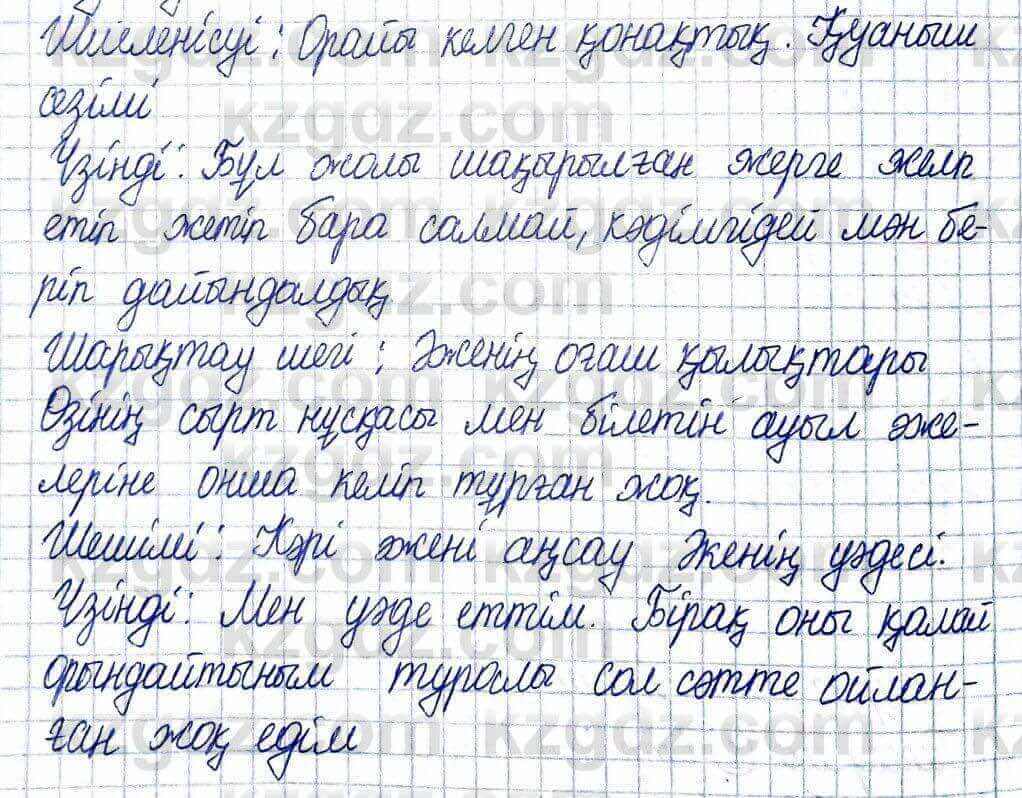 Шиеленісуі: Орайы келген қонақтық. Қуаныш
сезімі
Үзінді: Бұл жолы шақырылған жерге желп
етіп жетіп бара салмай, кәдімгідей мән бе-
ріп дайындалдық
Шарықтау шегі: Әженің оғаш қылықтары
Өзінің сырт нұсқасы мен білетін ауыл әже-
леріне онша келіп тұрған жоқ.
Шешімі: Кәрі әжені аңсау Әженің уәдесі.
Үзінді: Мен уәде еттім. Бірақ оны қалай
орындайтыным туролы сол сәтте ойлан-
ған жоқ едім
kzgdz.com